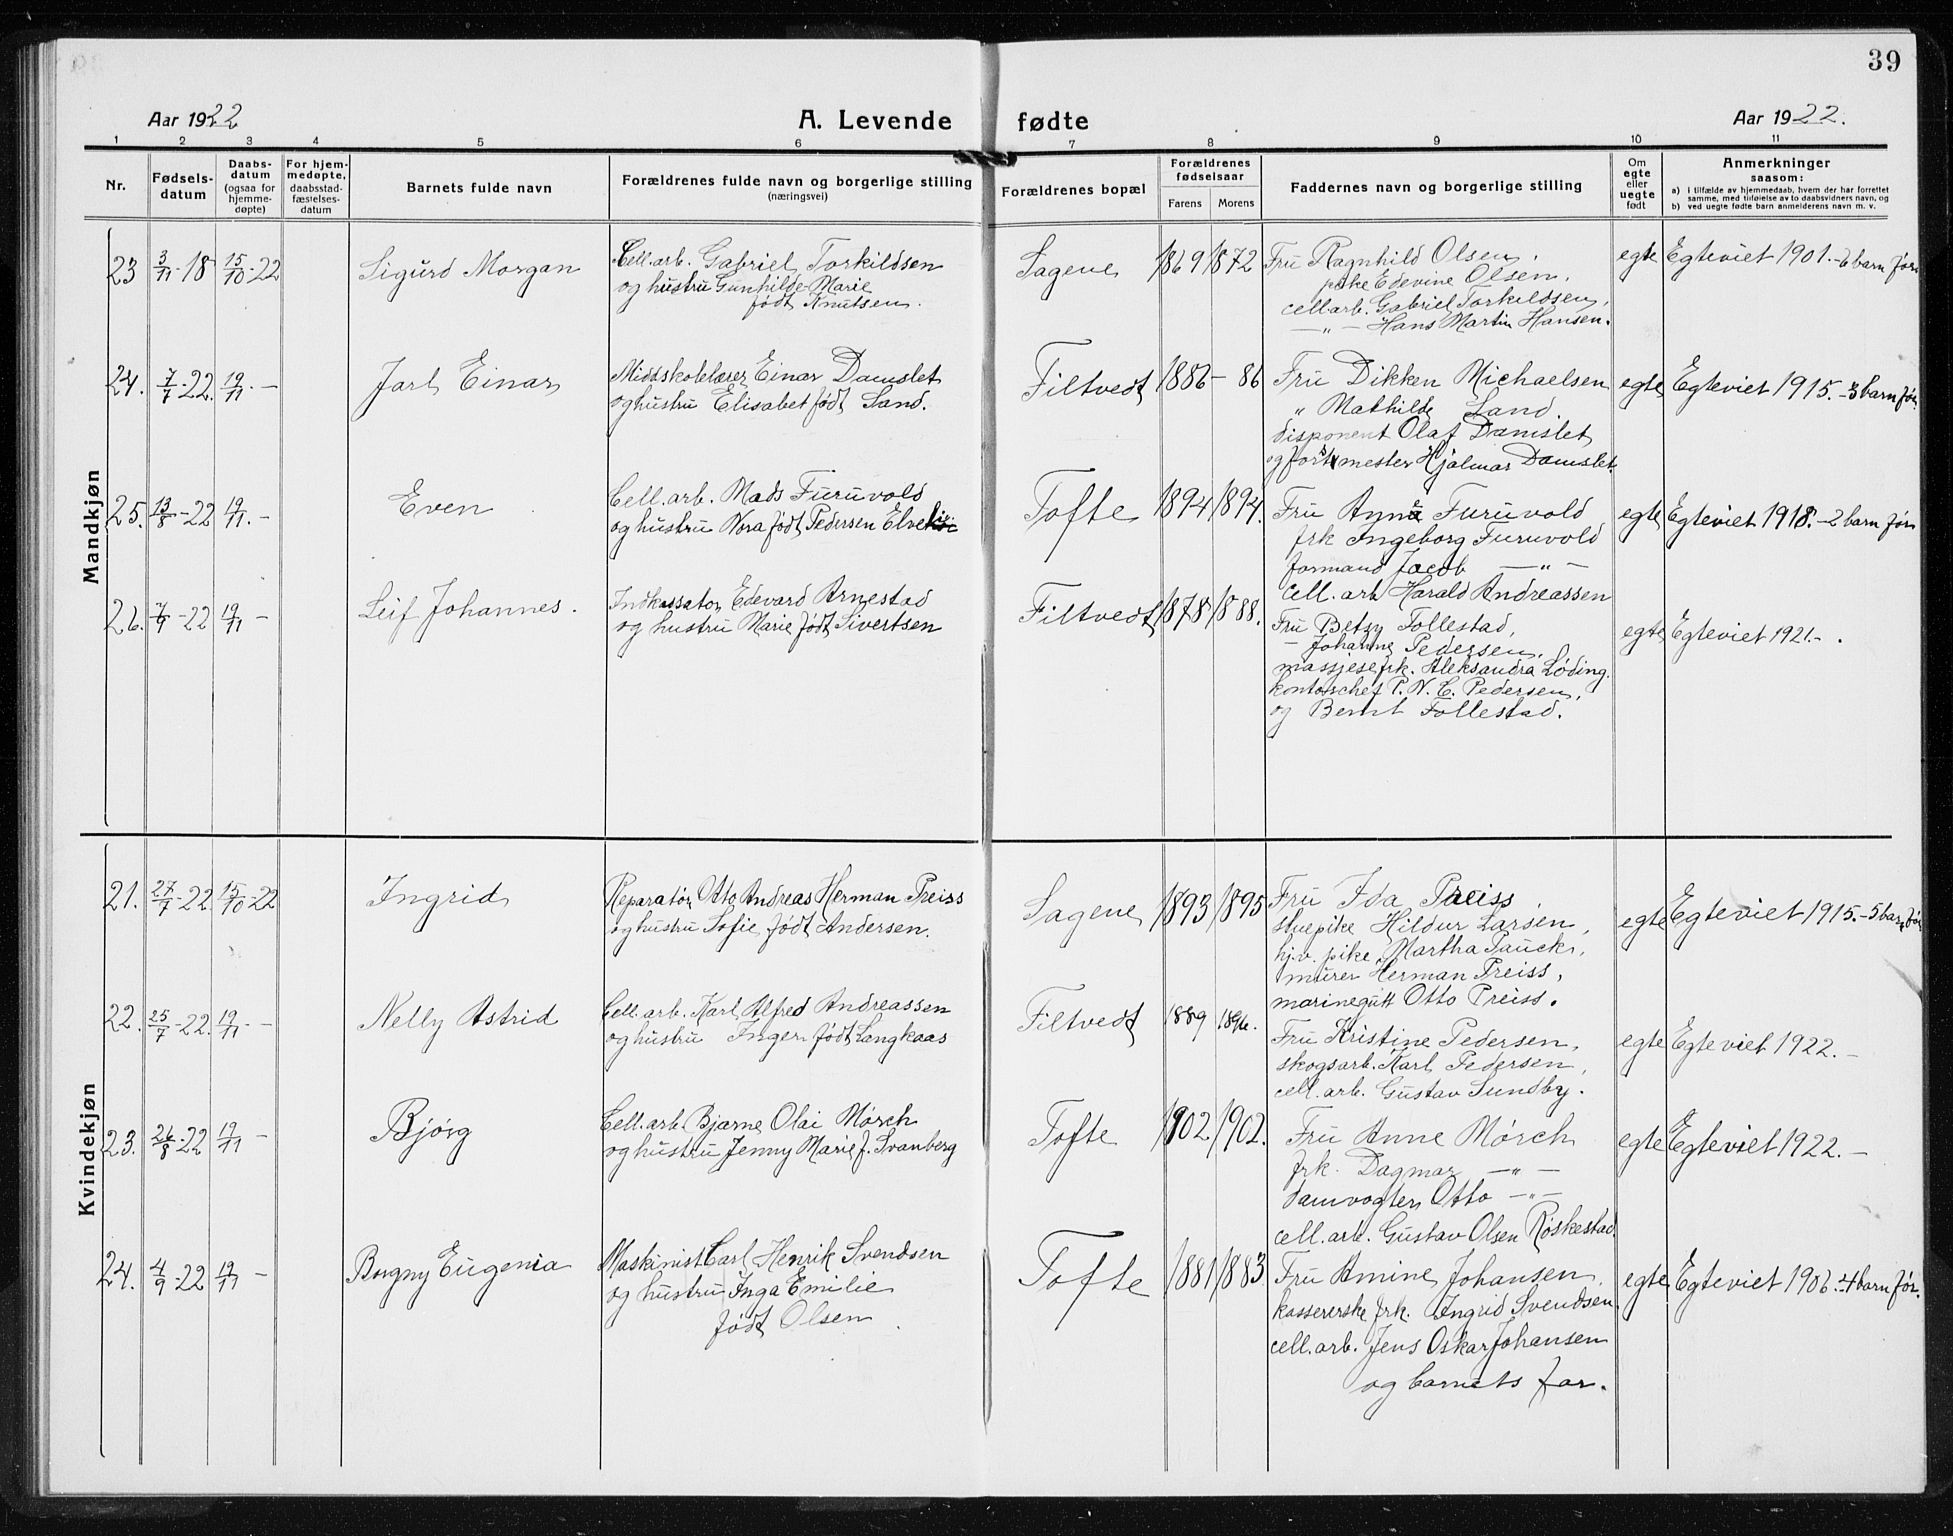 39
Aar 1922
A. Levende fødte
Aar 1922.
1 2 3 4 5 6 7 8 9 10 11
Nr.
Fødsels-
datum
Daabs-
datum
(ogsaa for
hjemme-
døpte)
For hjem-
medøpte,
daabsstad-
fæstelses-
datum
Barnets fulde navn
Forældrenes fulde navn og borgerlige stilling
(næringsvei)
Forældrenes bopæl
Forældrenes
fødselsaar
Farens Morens
Faddernes navn og borgerlige stilling
Om
egte
eller
uegte
født
Anmerkninger
saasom:
a) i tilfælde av hjemmedaab, hvem der har forrettet
samme, med tilføielse av to daabsvidners navn, og
b) ved uegte fødte barn anmelderens navn m. v.
Mandkjøn
23 3/11-18 15/10-22 Sigurd Morgan
Cell.arb. Gabriel Torkildsen
og hustru Gunhilde Marie
født Knutsen.
Sagene 1869 1872
Fru Ragnhild Olsen,
pike Edevine Olsen,
cellarb. Gabriel Torkildsen,
—„— Hans Martin Hansen.
egte Egteviet 1901.-6 barn før.
24. 7/7-22. 19/11.- Jarl Einar
Middskolelærer Einar Damslet
og hustru Elisabet født Sand.
Filtvedt 1886 - 86
Fru Dikken Michaelsen
„ Mathilde Sand.
disponent Olaf Damslet
og forstmester Hjalmar Damslet.
egte Egteviet 1915.-3 barn før.
25. 13/8-22 19/11.- Even
Cell.arb. Mads Furuvold
og hustru Nora født Pedersen
Tofte 1894 1894.
Fru Anna Furuvold
frk Ingeborg Furuvold
formand Jacob —„—
cell. arb Harald Andreassen
egte Egteviet 1918.-2 barn før
26. 7/9-22 19/11- Leif Johannes.
Indkassator Edevard Arnestad
og hustru Marie født Sivertsen
Filtvedt 1878 1888.
Fru Betzy Follestad,
- Johanne Pedersen,
massjesefrk. Aleksandra Løding.
kontorschef P. N. C. Pedersen,
og Bernt Follestad.
egte Egteviet 1921.-.
Kvindekjøn
21. 27/7-22 15/10-22 Ingrid
Reparatør Otto Andreas Herman Preiss
og hustru Sofie født Andersen.
Sagene 1893 1895
Fru Ida Preiss
stuepike Hildur Larsen,
hj.v. pike Martha Pauck,
murer Herman Preiss,
marinegutt Otto Preiss.
egte Egteviet 1915.-5 barn før
22. 25/7-22. 19/11- Nelly Astrid
Cell. arb. Karl Alfred Andreassen
og hustru Inger født Langkaas
Filtvedt 1889 1896.
Fru Kristine Pedersen,
skogsarb. Karl Pedersen,
cell. arb. Gustav Sundby.
egte Egteviet 1922.-
23. 26/8-22 19/11- Bjørg
Cell.arb. Bjarne Olai Mørch
og hustru Jenny Marie f. Svanberg
Tofte 1902 1902.
Fru Anne Mørch
frk. Dagmar —„—
damvogter Otto —„—
cell. arb. Gustav Olsen Røskestad.
egte Egteviet 1922.-
24. 4/9-22 19/11- Borgny Eugenia
Maskinist Carl Henrik Svendsen
og hustru Inga Emilie
født Olsen
Tofte 1881 1883.
Fru Amine Johansen,
kassererske frk. Ingrid Svendsen.
cell.arb. Jens Oskar Johansen
og barnets far.
egte Egteviet 1906.-4 barn før.